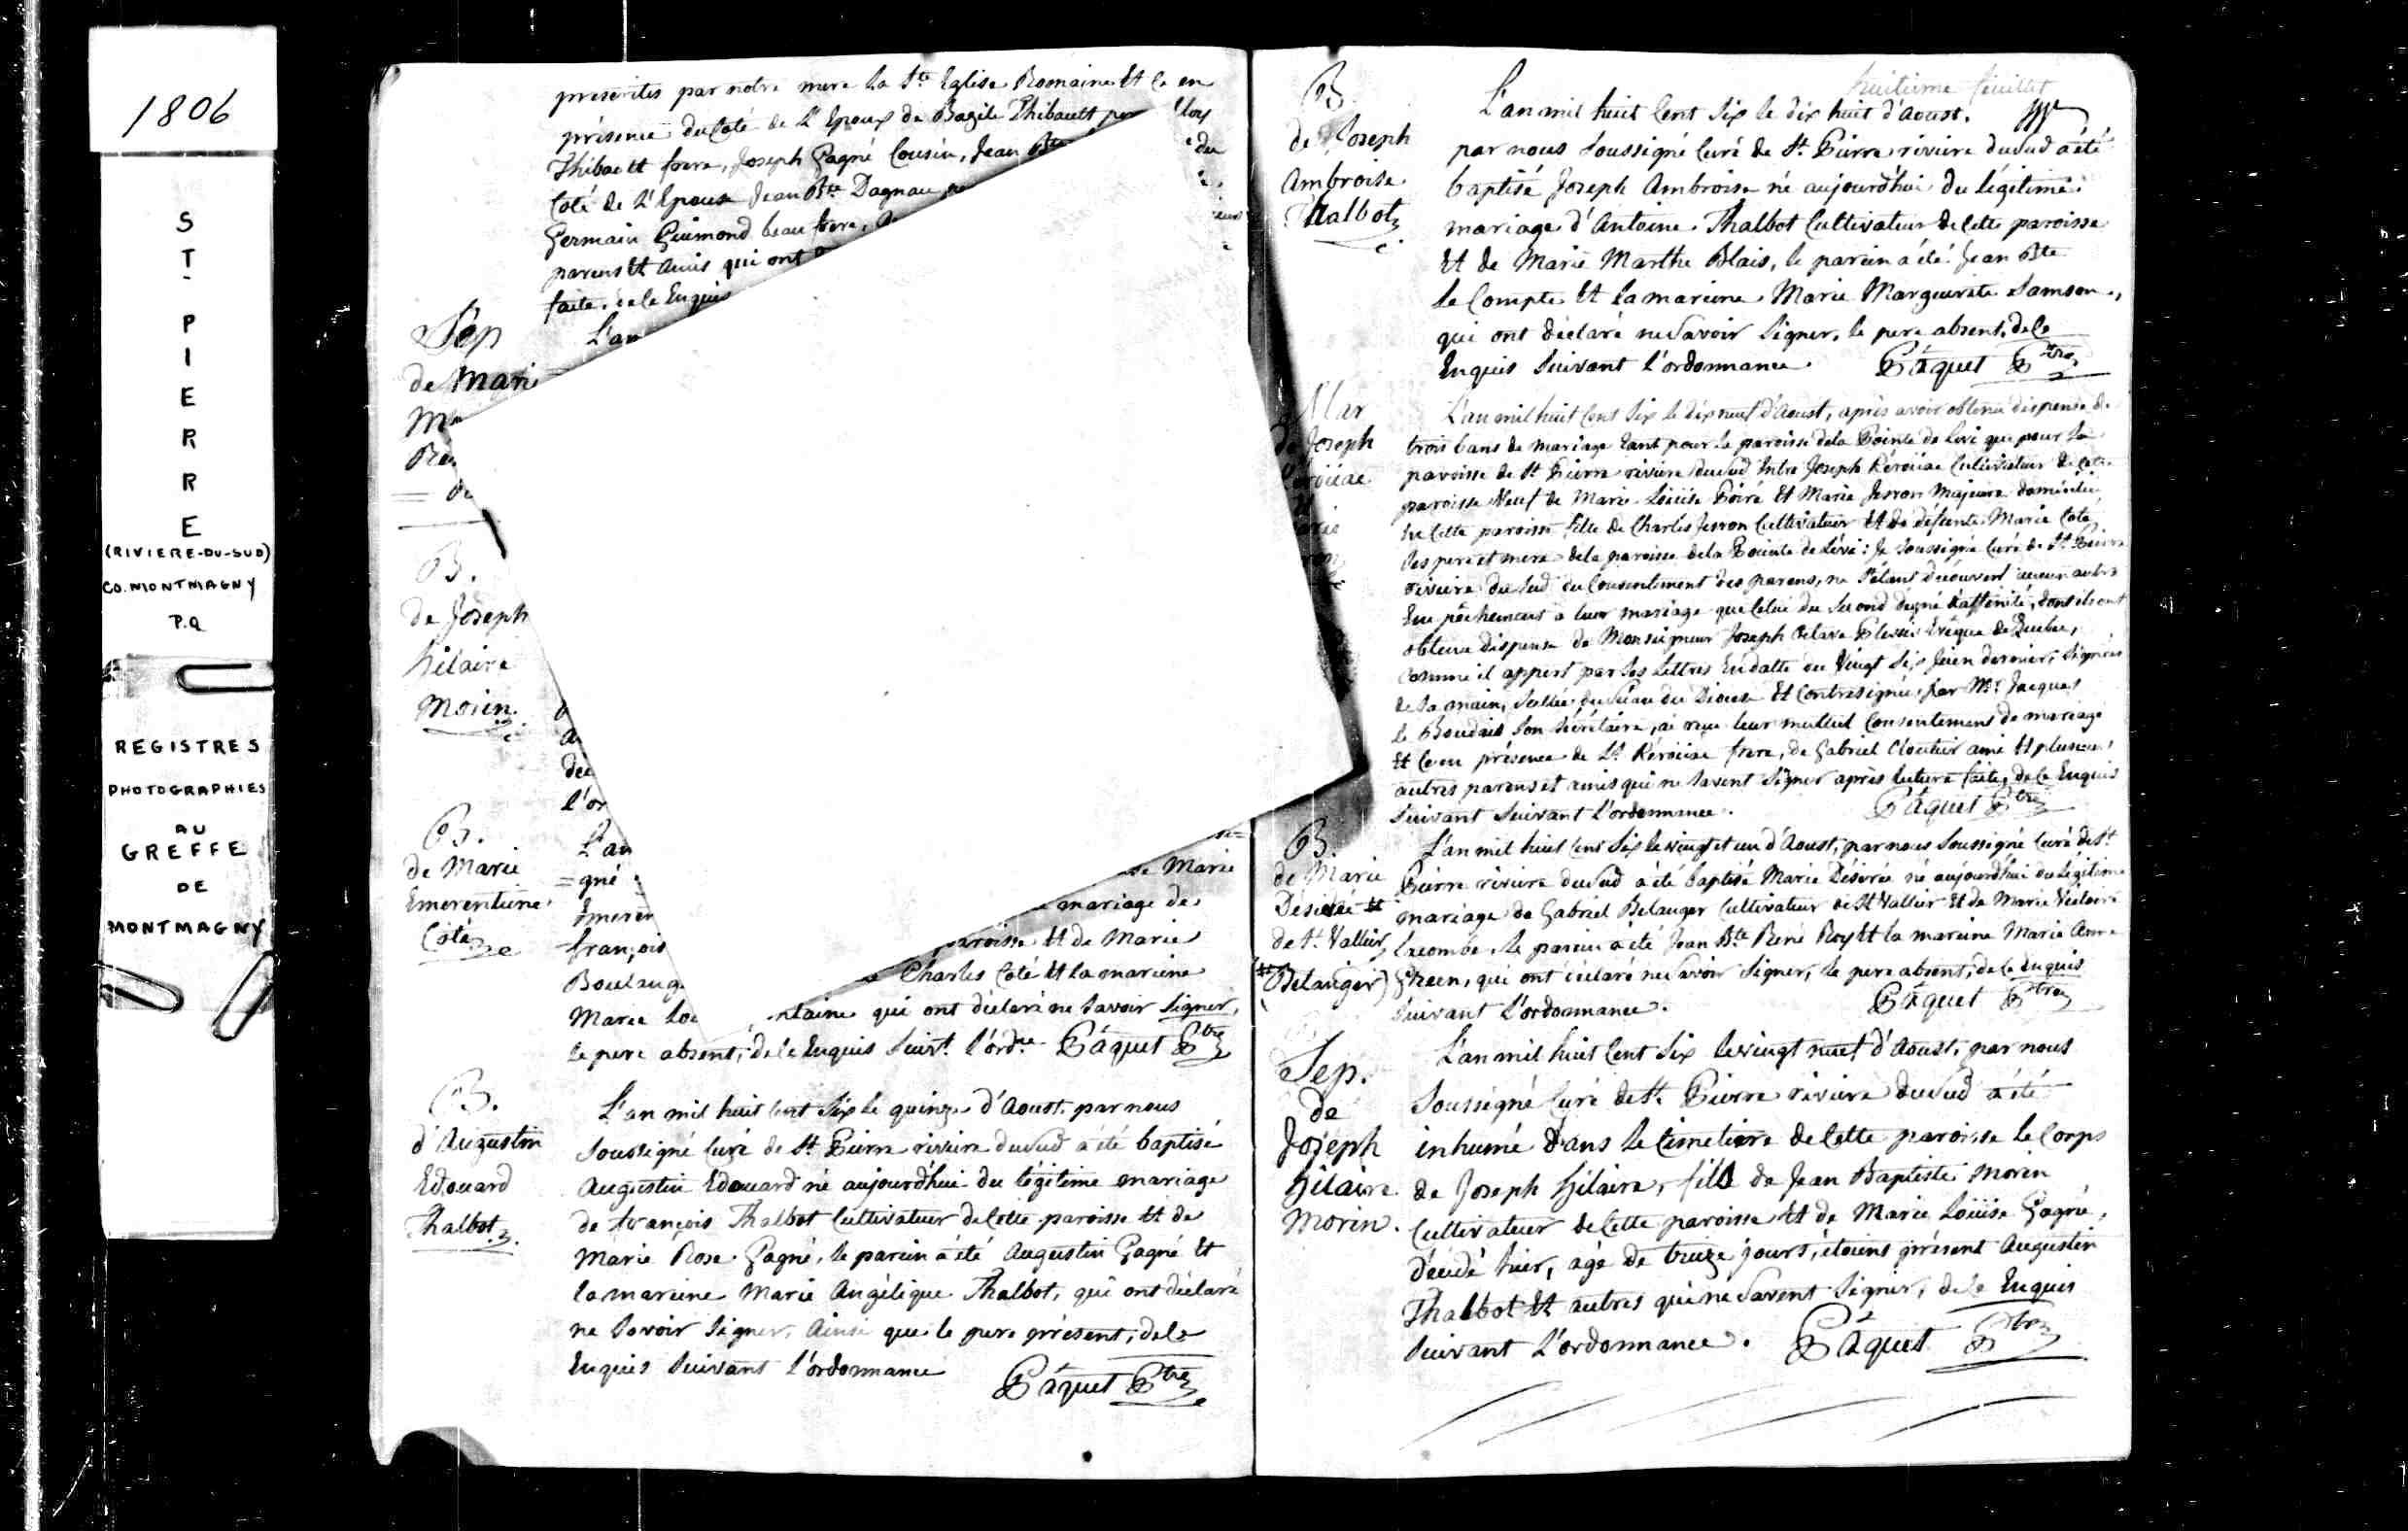 1806
ST-PIERRE
(RIVIERE-DU-SUD)
CO. MONTMAGNY
P.Q
REGISTRES
PHOTOGRAPHIES
AU
GREFFE
DE
MONTMAGNY
prescrites par notre mere la Ste Eglise Romaine et ce en
présence du Coté de l'Epoux de Bazile Thibault
Thibault frere, Joseph Gagné Cousin, Jean Bte
Coté de l'Epouse Jean Bte Dagnau
Germain Guimond beau frere,
parens et amis qui ont
faite. de ce Enquis
Sép
de Mari
L'an
B.
de Joseph
hilaire
Morin
l'or
B.
de Marie
Emerentienne
Coté
L'an
=gné
Emeren
françois
Boulang
Marie
Marie
mariage de
aroisse et de Marie
Charles Coté et la mareine
ntaine qui ont déclaré ne Savoir Signer,
le pere absent, de ce Enquis Suivt. l'ordce Pâquet Ptre
B.
d'Augustin
Edouard
Thalbot
L'an mil huit Cent Six le quinze d'Aoust par nous
Soussigné Curé de St. Pierre riviere du Sud a été baptisé
Augustin Edouard né aujourd'hui du légitime mariage
de françois Thalbot Cultivateur de Cette paroisse et de
Marie Rose Gagné, le parein a été Augustin Gagné et
la mareine Marie Angélique Thalbot, qui ont déclaré
ne Savoir Signer, Ainsi que le pere présent, de ce
Enquis Suivant l'ordonnance Pâquet Ptre
huitieme feuillet
B
de Joseph
Ambroise
Thalbot
L'an mil huit Cent Six le dix huit d'Aoust.
par nous Soussigné Curé de St. Pierre riviere du Sud a été
baptisé Joseph Ambroise né aujourd'hui du légitime
mariage d'Antoine Thalbot Cultivateur de Cette paroisse
et de Marie Marthe Blais, le parein a été Jean Bte
le Compte et la mareine Marie Marguerite Samson,
qui ont déclaré ne Savoir Signer, le pere absent, de ce
Enquis Suivant l'ordonnance Pâquet Ptre
Mar
de Joseph
L'an mil huit Cent Six le dix neuf d'Aoust, après avoir obtenu dispense de
trois bans de mariage tant pour la paroisse de la Pointe de Levi que pour la
paroisse de St Pierre riviere du Sud Entre Joseph Kéroüac Cultivateur de Cette
paroisse Veuf de Marie Loüise Poiré et Marie Jesron Majeure domiciliée
de Cette paroisse fille de Charles Jesron Cultivateur et de defunte Marie Coté
Ses pere et mere de la paroisse de la Pointe de Lévi: Je Soussigné Curé de St. Pierre
riviere du Sud du Consentement des parens, ne S'étant découvert aucun autre
Empêchement à leur mariage que Celui du Second degré d'affinité, dont ils ont
obtenu dispense de Monseigneur Joseph Octave Plessis Evêque de Quebec,
comme il appert par Ses Lettres En datte du Vingt Six Juin dernier, Signées
de Sa main, Scellée du Sceau du Diocese et Contresignée, par Mr. Jacques
le Bourdais Son Secrétaire, ai reçu leur mutuel Consentement de mariage
et Ce en présence de Ls. Kéroüac frere, de Gabriel Cloutier ami et plusieurs
autres parens et amis qui ne Savent Signer après lecture faite, de Ce Enquis
Suivant Suivant l'ordonnance. Pâquet Ptre
B.
de Marie
Desirée #
de St. Vallier
(# Belanger)
L'an mil huit Cent Six le vingt et un d'Aoust, par nous Soussigné Curé de St
Pierre riviere du Sud a été baptisé Marie Désirée né aujourd'hui du légitime
mariage de Gabriel Belanger Cultivateur de St Vallier et de Marie Victoire
lacombe, le parein a été Jean Bte René Roy et la mareine Marie Anne
Green, qui ont déclaré ne Savoir Signer, le pere absent, de Ce Enquis
Suivant l'ordonnance. Pâquet Ptre
Sep.
de
Joseph
hilaire
Morin.
L'an mil huit Cent Six le vingt neuf d'Aoust, par nous
Soussigné Curé de St. Pierre riviere du Sud a été
inhumé dans le Cimetiere de Cette paroisse le Corps
de Joseph hilaire, fils de Jean Baptiste Morin
Cultivateur de Cette paroisse et de Marie Loüise Gagné,
décédé hier, agé de treize jours, étoient présent Augustin
Thalbot et autres qui ne Savent Signer, de Ce Enquis
Suivant l'ordonnance. Pâquet Ptre